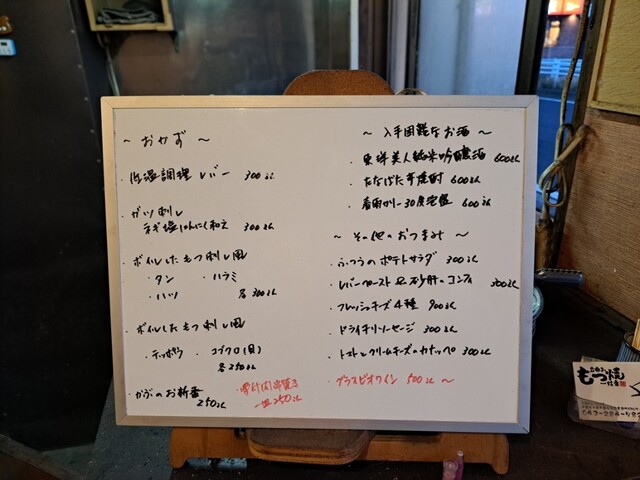 ～ おかず ～
・低温調理レバー 300えん
・ガツ刺し
ネギ塩にんにく和え 300えん
・ボイルしたもつ刺し風
・タン ・ハラミ
・ハツ 各300えん
・ボイルしたもつ刺し風
・テッポウ ・コブクロ
各250えん
・かぶのお新香
250えん
一皿250えん
～ 入手困難なお酒 ～
・東洋美人純米吟醸酒 600えん
・たなばた芋焼酎 600えん
600えん
～ その他のおつまみ ～
・ふつうのポテトサラダ 300えん
・レバーペースト&砂肝のコンフィ 300えん
・フレッシュチーズ4種 900えん
・ドライチリソーセージ 300えん
・トマトとクリームチーズのカナッペ 300えん
・グラスビオワイン 500えん ～
もつ焼